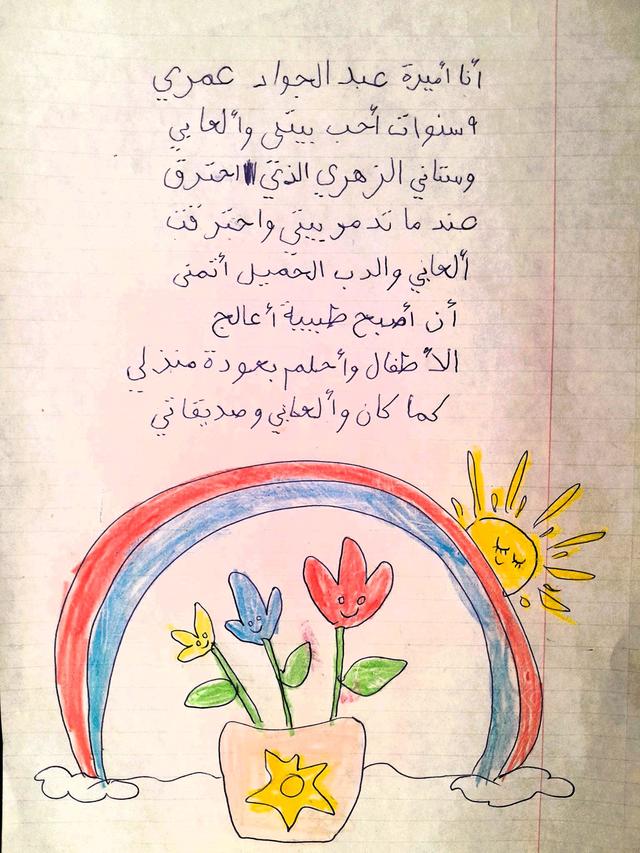 أنا أميرة عبد الجواد عمري
٩ سنوات أحب بيتي وألعابي
وستاني الزهري الذي احترق
عند ما تدمر بيتي واحترقت
ألعابي والدب الجميل أتمنى
أن أصبح طبيبة أعالج
الأطفال وأحلم بعودة منزلي
كما كان وألعابي وصديقاتي